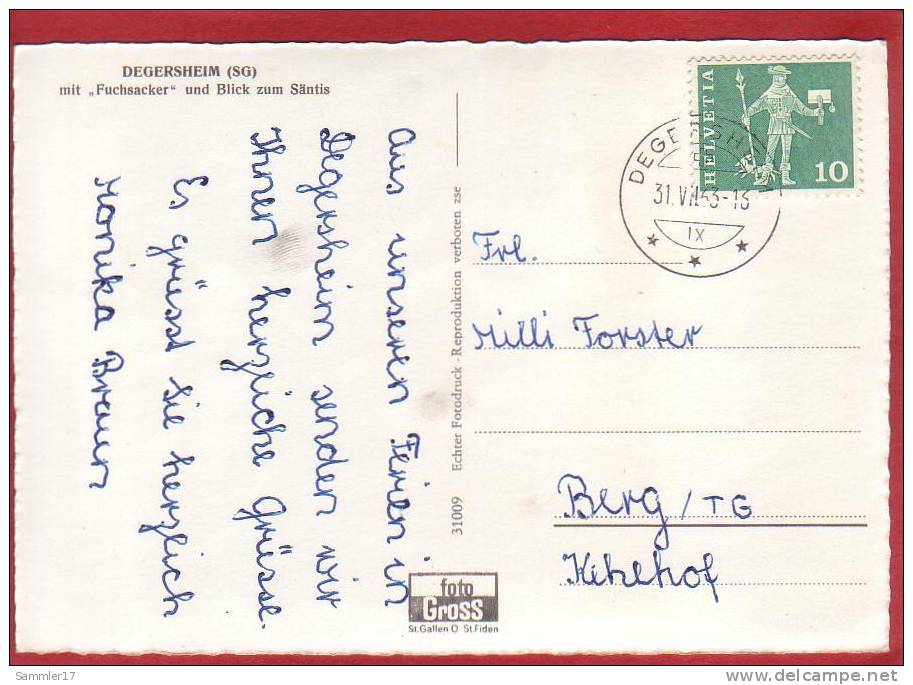 DEGERSHEIM (SG)
mit „Fuchsacker" und Blick zum Säntis
Aus unseren Ferien in
Degersheim senden wir
Ihnen herzliche Grüsse.
Es grüsst sie herzlich
Monika Braun
31009 Echter Fotodruck - Reproduktion verboten zse
foto
Gross
St.Gallen O St.Fiden
HELVETIA
10
DEGERSHEIM
IX
Frl.
Milli Forster
Berg / TG
Kehlhof
Sammler17
delcampe.net